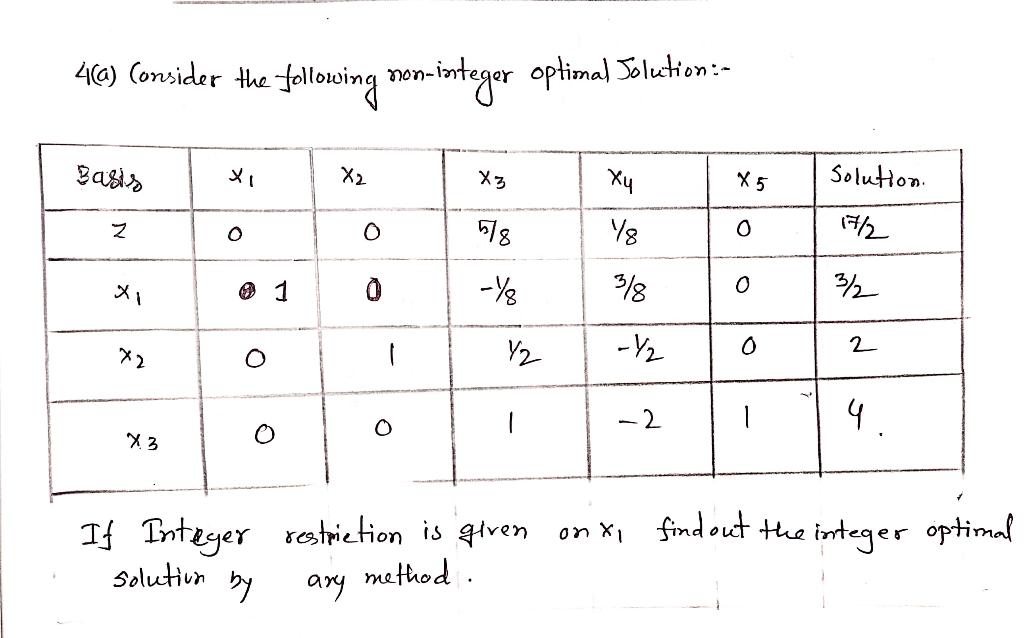 4(a) Consider the following non-integer optimal Solution:-
Basis x1 x2 x3 x4 x5 Solution.
Z 0 0 5/8 1/8 0 17/2
x1 1 0 -1/8 3/8 0 3/2
x2 0 1 1/2 -1/2 0 2
x3 0 0 1 -2 1 4.
If Integer restriction is given on x1 find out the integer optimal
solution by any method.